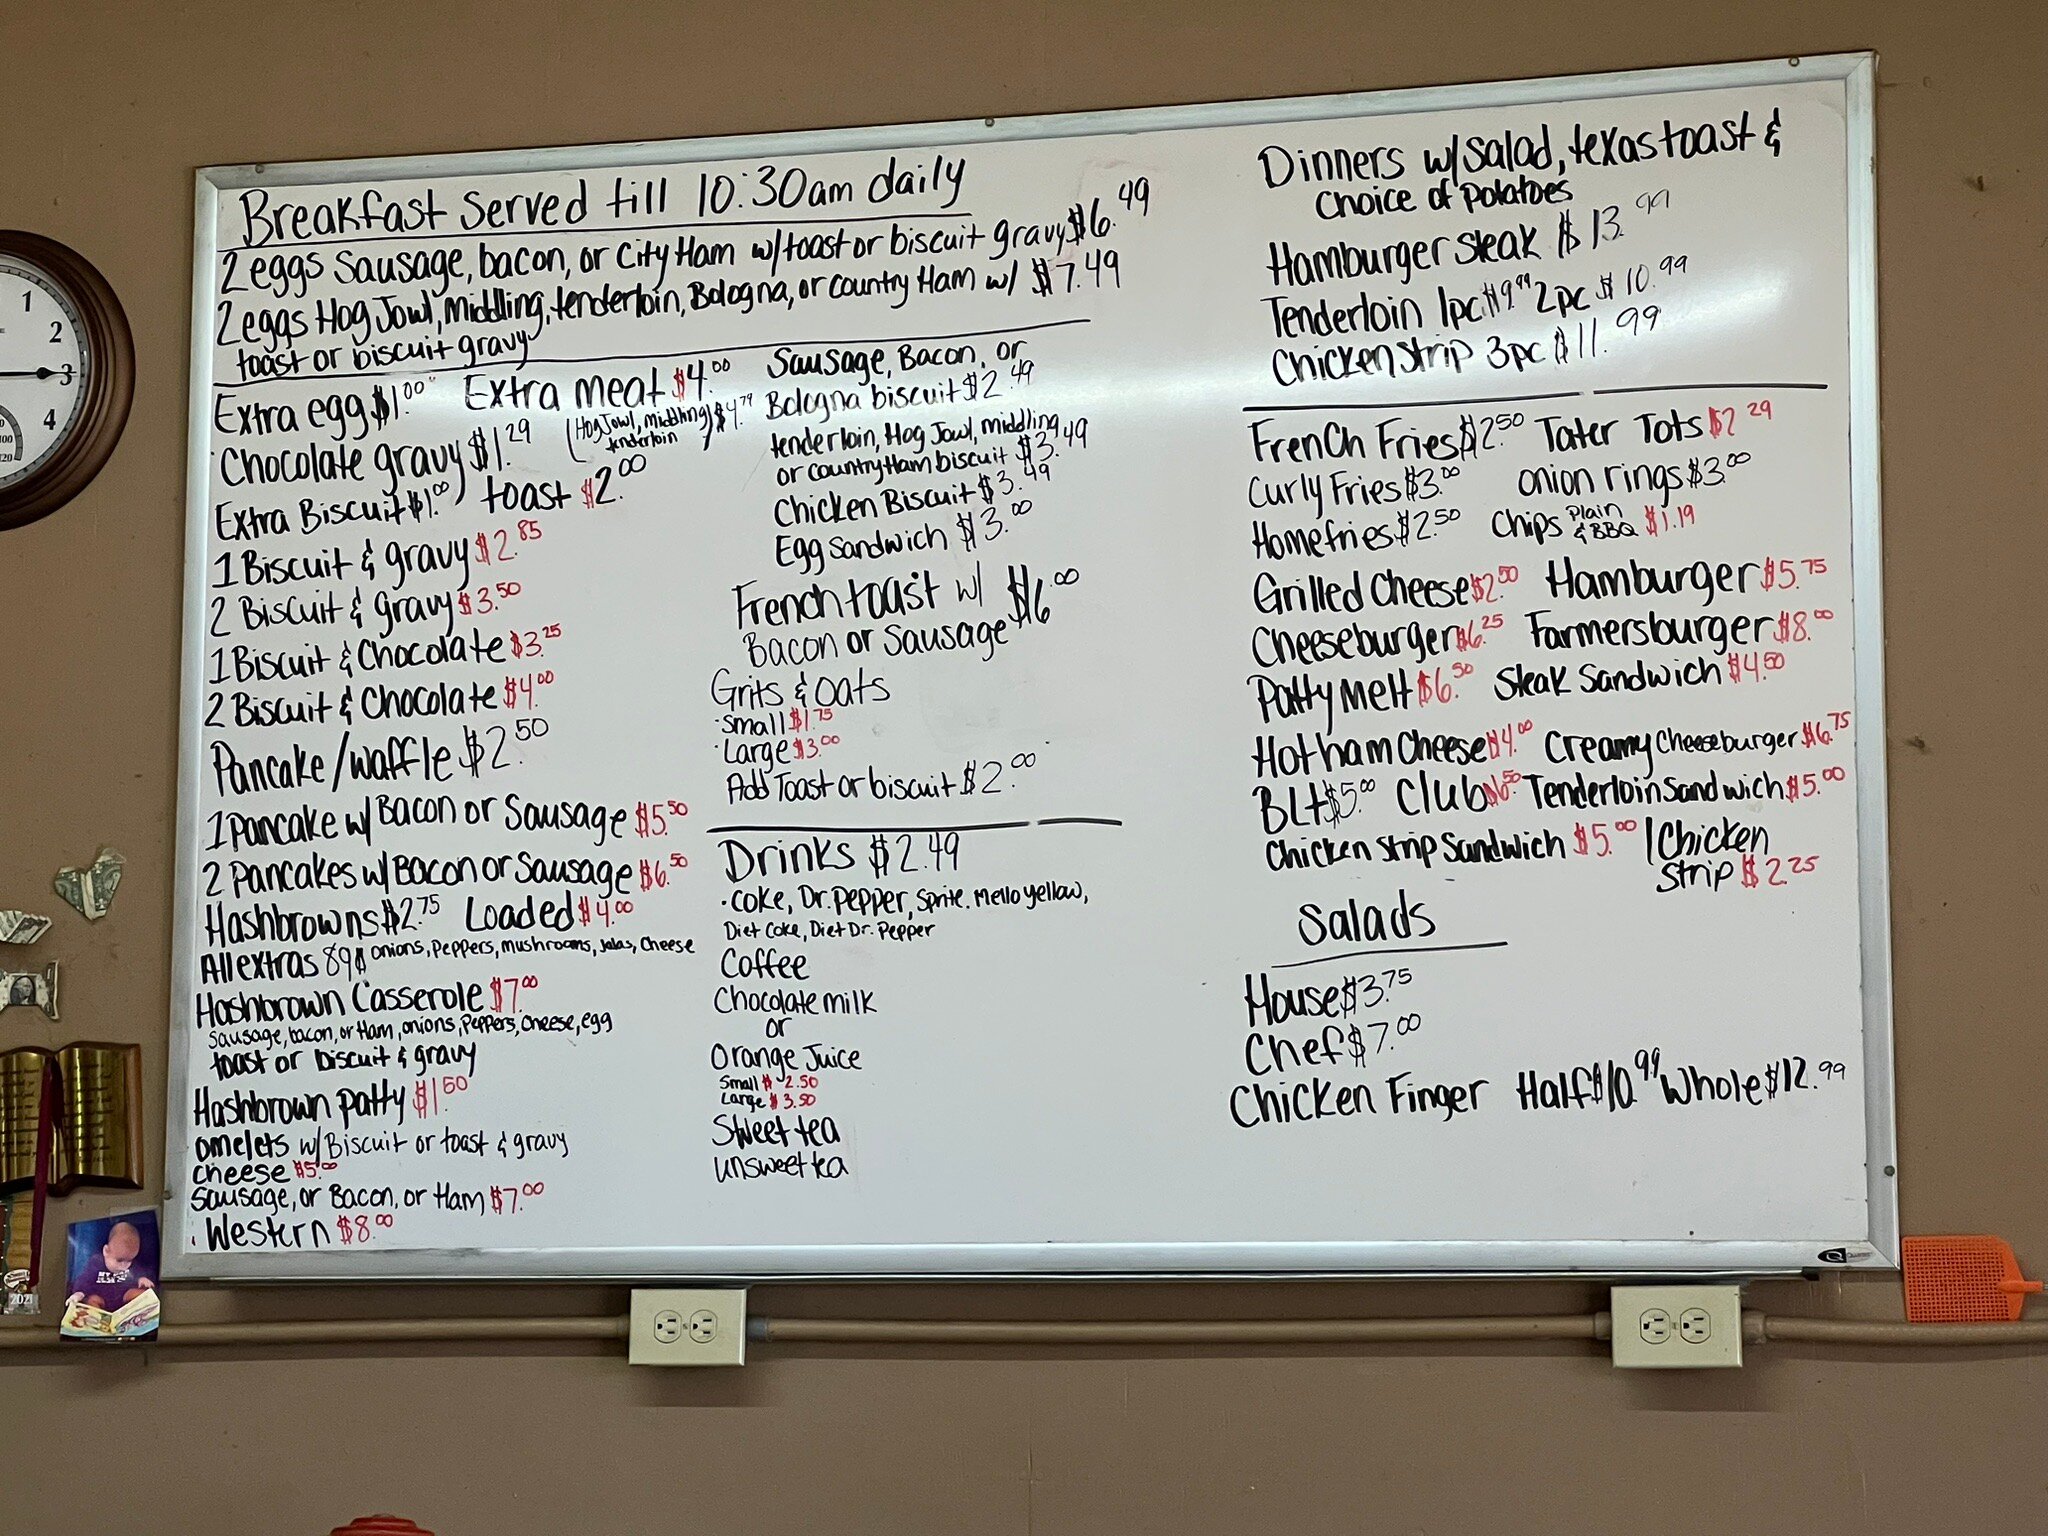 Breakfast Served till 10:30am daily
2 eggs Sausage, bacon, or City Ham w/toast or biscuit gravy $6.49
2 eggs Hog Jowl, Middling, tenderloin, Bologna, or country Ham w/ $7.49
toast or biscuit gravy
Extra egg $1.00 Extra meat $4.00
(Hog Jowl, middling tenderloin) $4.79
Chocolate gravy $1.29
Extra Biscuit $1.00 / toast $2.00
1 Biscuit & gravy $2.85
2 Biscuit & gravy $3.50
1 Biscuit & Chocolate $3.25
2 Biscuit & Chocolate $4.00
Pancake/waffle $2.50
1 Pancake w/ Bacon or Sausage $5.50
2 Pancakes w/ Bacon or Sausage $6.50
Hashbrowns $2.75 Loaded $4.00
All extras 89¢ onions, Peppers, mushrooms, Jalas, Cheese
Hashbrown Casserole $7.00
Sausage, bacon, or Ham, onions, Peppers, Cheese, egg
toast or biscuit & gravy
Hashbrown patty $1.50
omelets w/ Biscuit or toast & gravy
cheese $5.00
Sausage, or Bacon, or Ham $7.00
Western $8.00
Sausage, Bacon, or
Bologna biscuit $2.49
tenderloin, Hog Jowl, middling
or country Ham biscuit $3.49
Chicken Biscuit $3.49
Egg sandwich $3.00
French toast w/ $6.00
Bacon or Sausage
Grits & Oats
Small $1.75
Large $3.00
Add Toast or biscuit $2.00
Drinks $2.49
Coke, Dr. Pepper, Sprite. Mello Yellow,
Diet Coke, Diet Dr. Pepper
Coffee
Chocolate milk
or
Orange Juice
Small $2.50
Large $3.50
Sweet tea
unsweet tea
Dinners w/ salad, texas toast &
Choice of Potatoes
Hamburger Steak $13.99
Tenderloin 1pc $9.99 2pc $10.99
Chicken Strip 3pc $11.99
French Fries $2.50 Tater Tots $2.29
Curly Fries $3.00 onion rings $3.00
Homefries $2.50 Chips Plain & BBQ $1.19
Grilled Cheese $2.50 Hamburger $5.75
Cheeseburger $6.25 Farmersburger $8.00
Patty Melt $6.50 Steak Sandwich $4.50
Hot ham Cheese $4.00 Creamy Cheeseburger $6.75
BLT $5.00 Club $6.50 Tenderloin Sandwich $5.00
Chicken Strip Sandwich $5.00 1 Chicken
Strip $2.25
Salads
House $3.75
Chef $7.00
Chicken Finger Half $10.99 Whole $12.99
1
2
3
4
2021